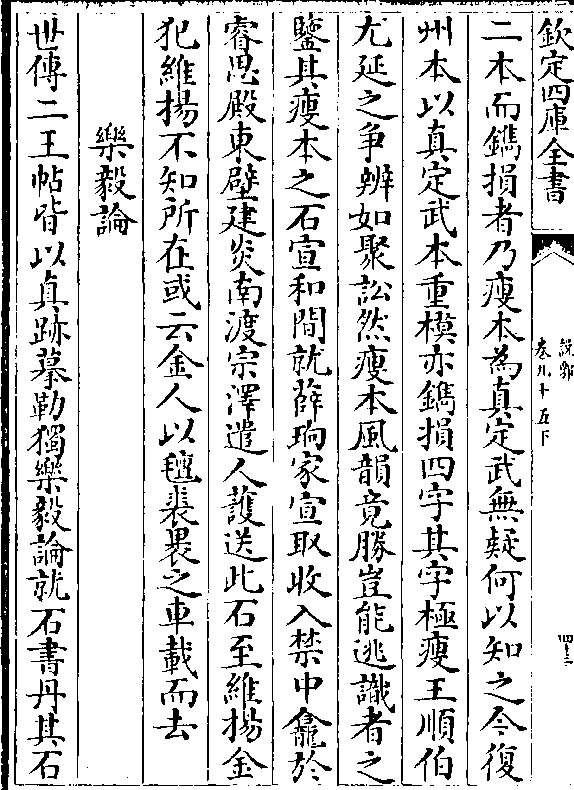 欽定四庫全書
說郛
卷九十五下
四十三
二本而鐫損者乃瘦本為真定武無疑何以知之今復
州本以真定武本重模亦鐫損四字其字極瘦王順伯
尤延之争辨如聚訟然瘦本風韻竟勝豈能逃識者之
鑒其瘦本之石宣和間就薛珦家宣取收入禁中龕於
睿思殿東壁建炎南渡宗澤遣人䕶送此石至維揚金
犯維揚不知所在或云金人以氊裘裹之車載而去
樂毅論
世傳二王帖皆以真跡摹勒獨樂毅論就石書丹其石